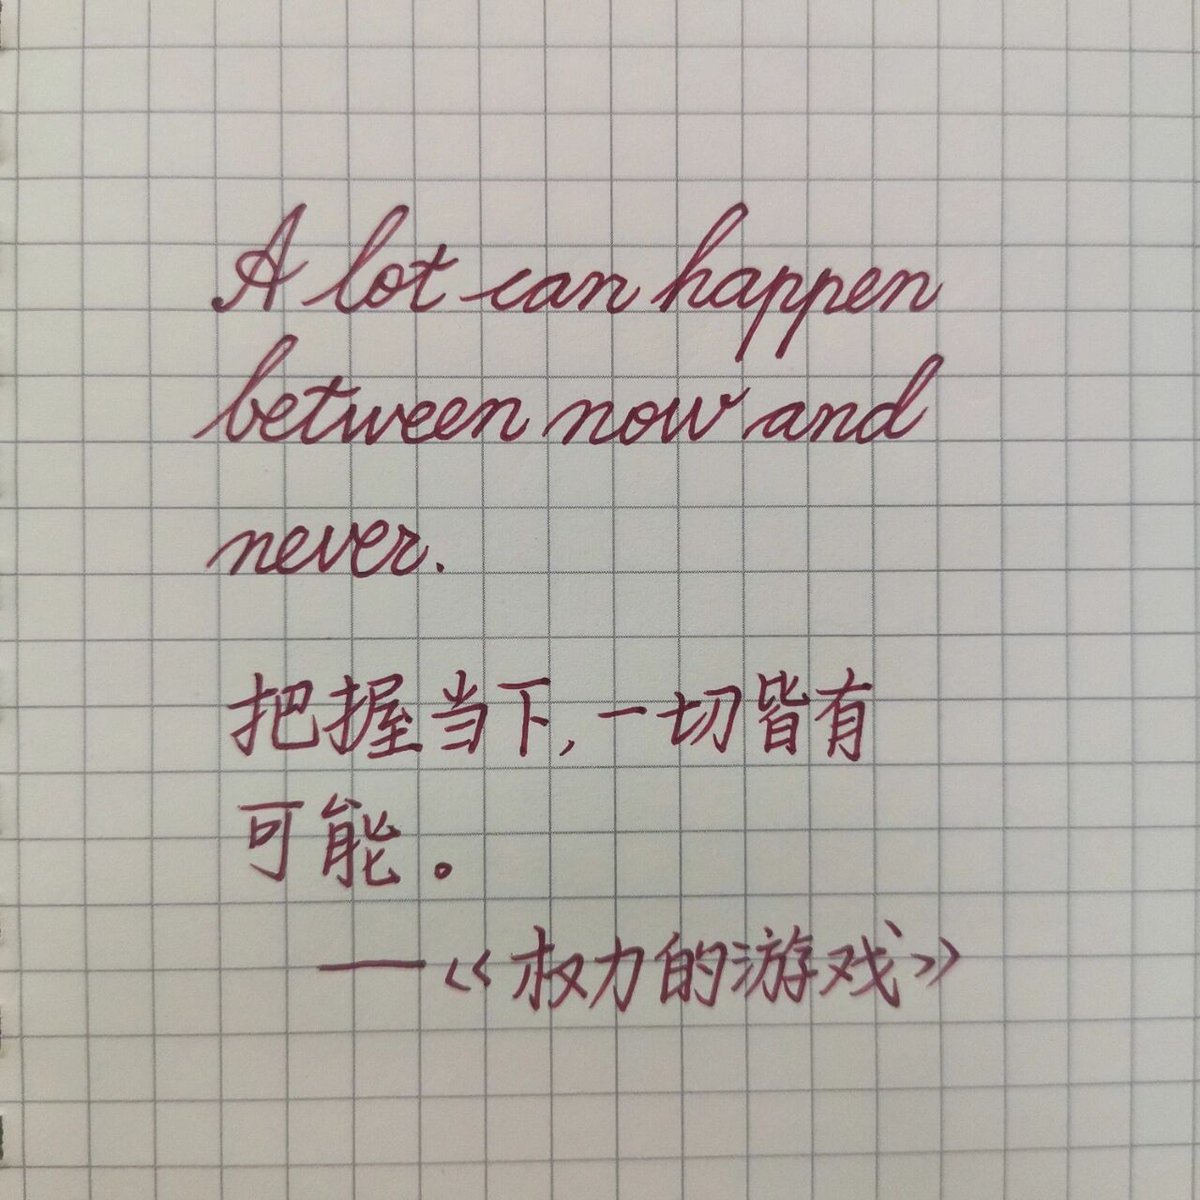 A lot can happen
between now and
never.
把握当下,一切皆有
可能。
——《权力的游戏》